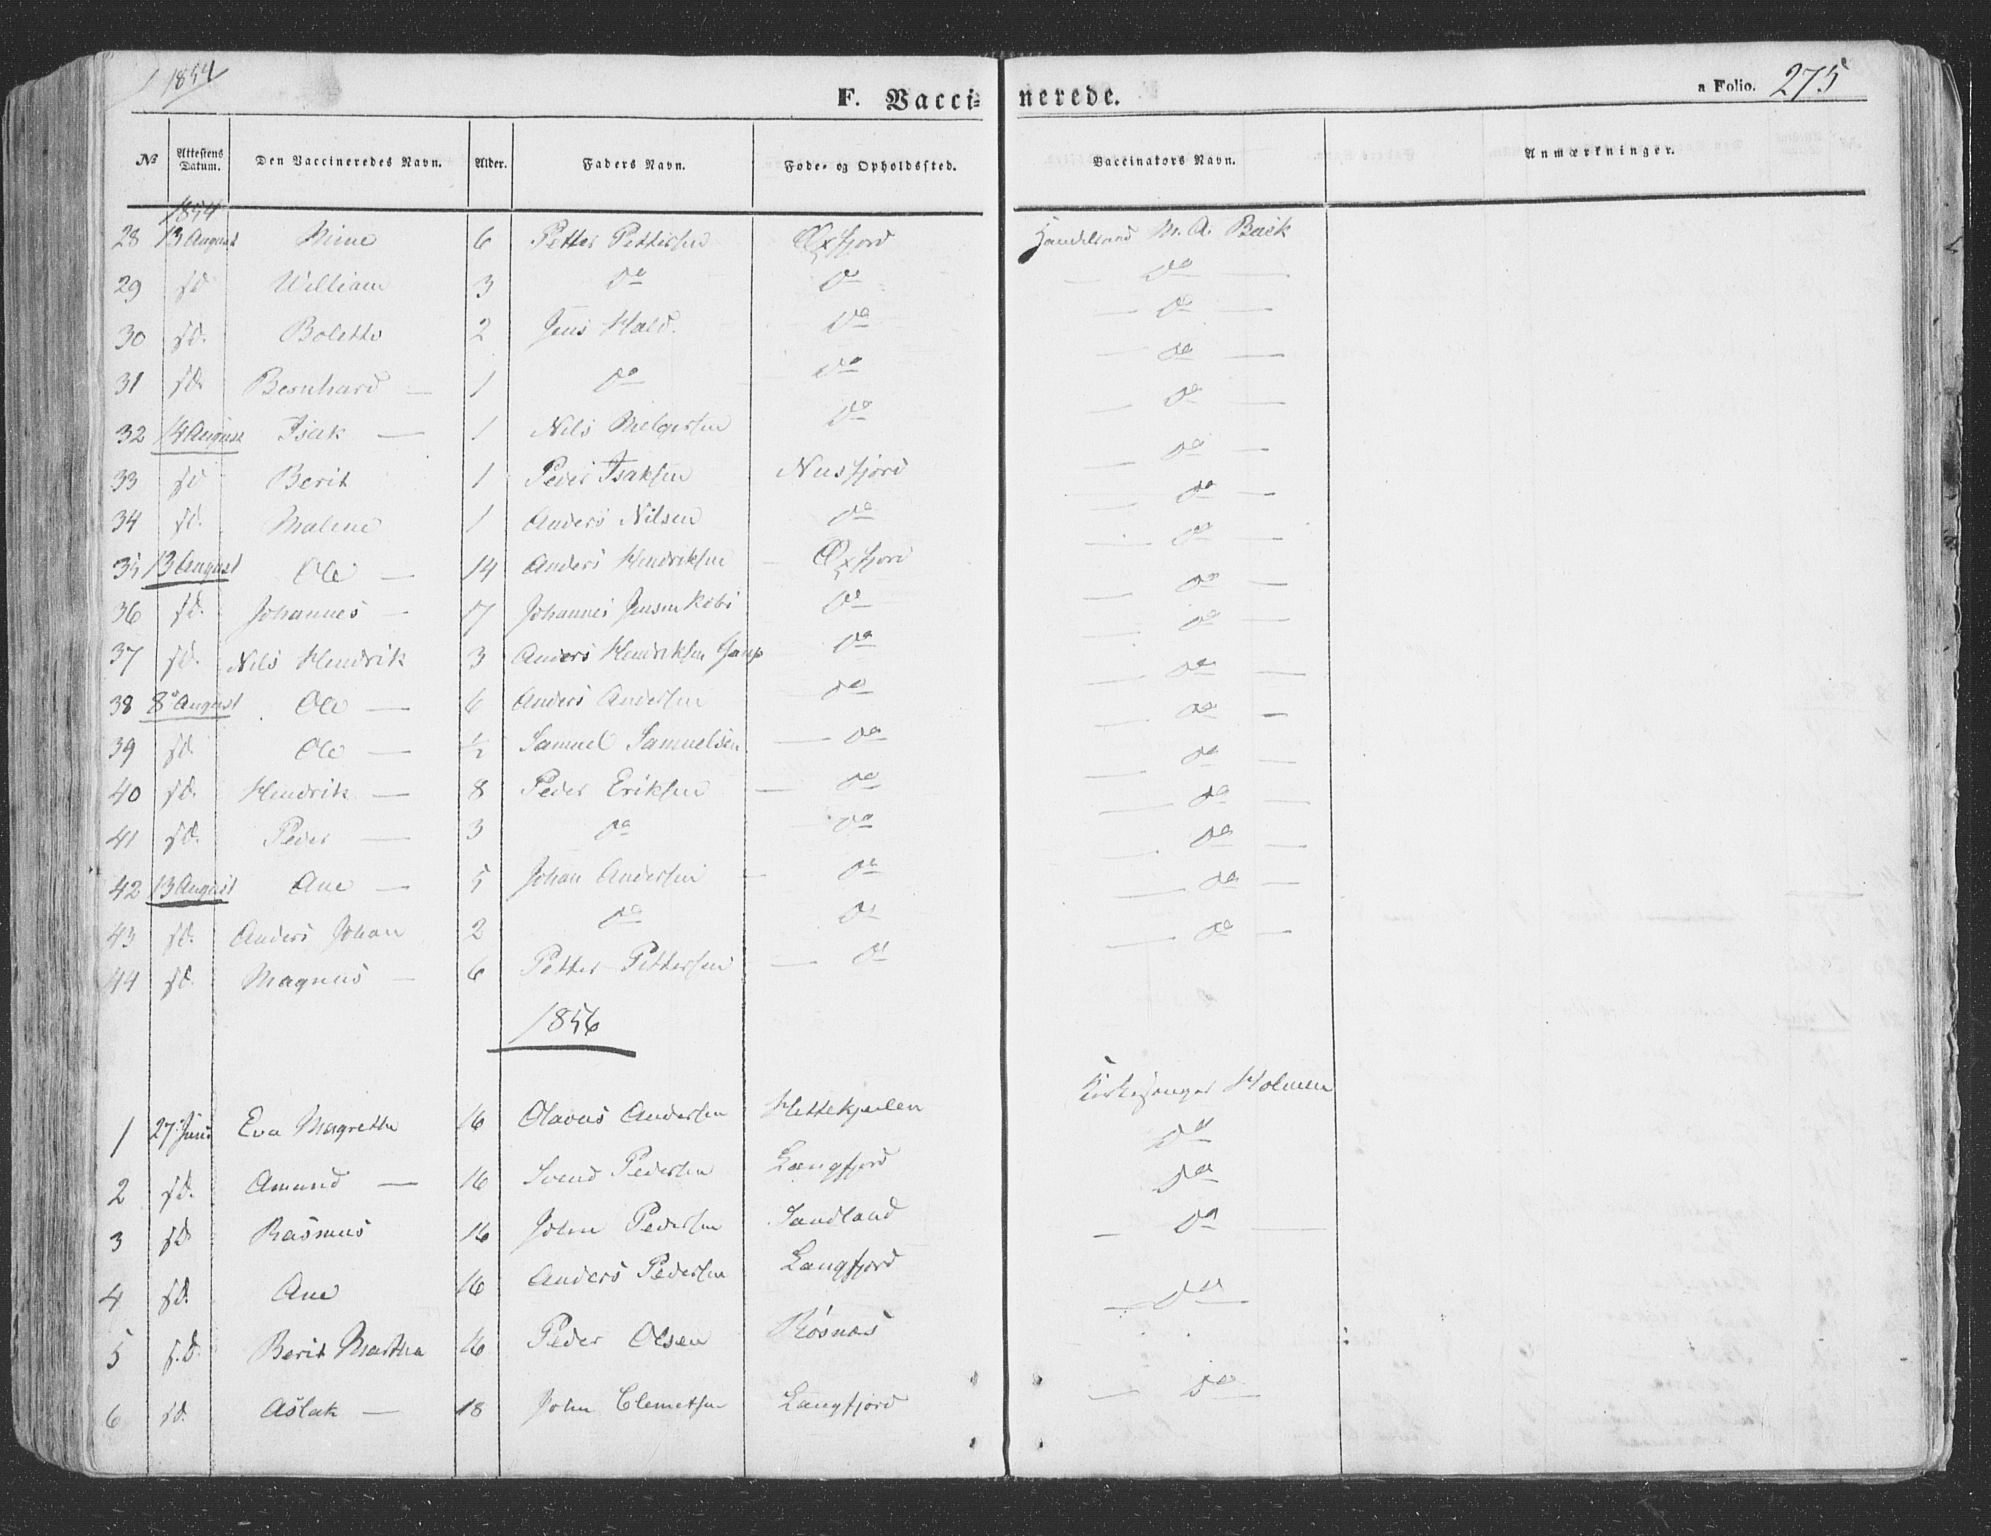 1854
F. Vaccinerede.
a Folio. 275
No Attestens Datum. Den Vaccineredes Navn. Alder. Faders Navn. Føde- og Opholdssted. Vaccinators Navn. Anmærkninger.
1854
28 13 August Mine 6 Petter Pettersen Øxfjord Handelsmand M. A. Back
29 sd. William 3 do do do
30 sd. Bolette 2 Jens Hald. do do
31 sd. Bernhard — 1 do do do
32 14 August Isak — 1 Nils do do
33 sd Berit 1 Peder Isaksen Nusfjord do
34 sd. Malene 1 Anders Nilsen do do
35 13 August Ole — 14 Anders Hendriksen Øxfjord do
36 sd. Johannes — 17 Johannes Jensen do do
37 sd. Nils Hendrik 3 Anders Hendriksen do do
38 8 August Ole — 6 Anders Andersen do do
39 sd. Ole — 1/2 Samuel Samuelsen do do
40 sd. Hendrik — 8 Peder Eriksen do do
41 sd. Peder — 3 do do do
42 13 August Ane — 5 Johan Andersen do do
43 sd. Anders Johan 2 do do do
44 sd. Magnus — 6 Petter Pettersen do do
1856
1 27 Juni Eva Magrethe 16 Olavus Andersen Klettekjeilen Kirkesanger Holmen
2 sd. Amund — 16 Svend Pedersen Langfjord do
3 sd. Rasmus 16 John Pedersen Sandland do
4 sd. Ane 16 Anders Pedersen Langfjord do
5 s.d. Berit Martha 16 Peder Olsen Røsnæs do
6 sd. Aslak — 18 John Clemetsen Langfjord do